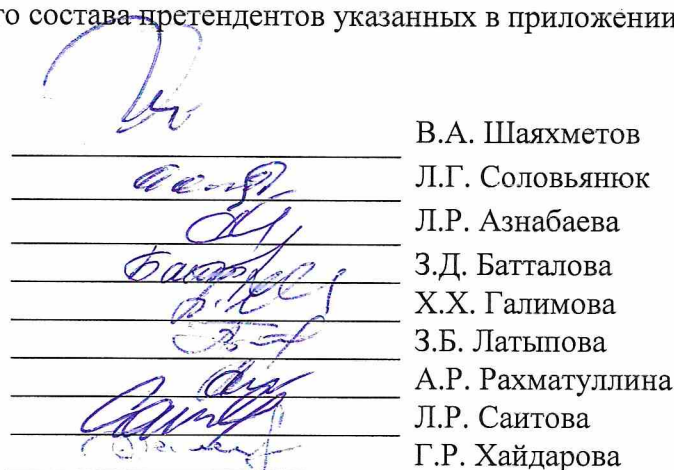 го состава претендентов указанных в приложении
В.А. Шаяхметов
Л.Г. Соловьянюк
Л.Р. Азнабаева
З.Д. Батталова
Х.Х. Галимова
З.Б. Латыпова
А.Р. Рахматуллина
Л.Р. Саитова
Г.Р. Хайдарова